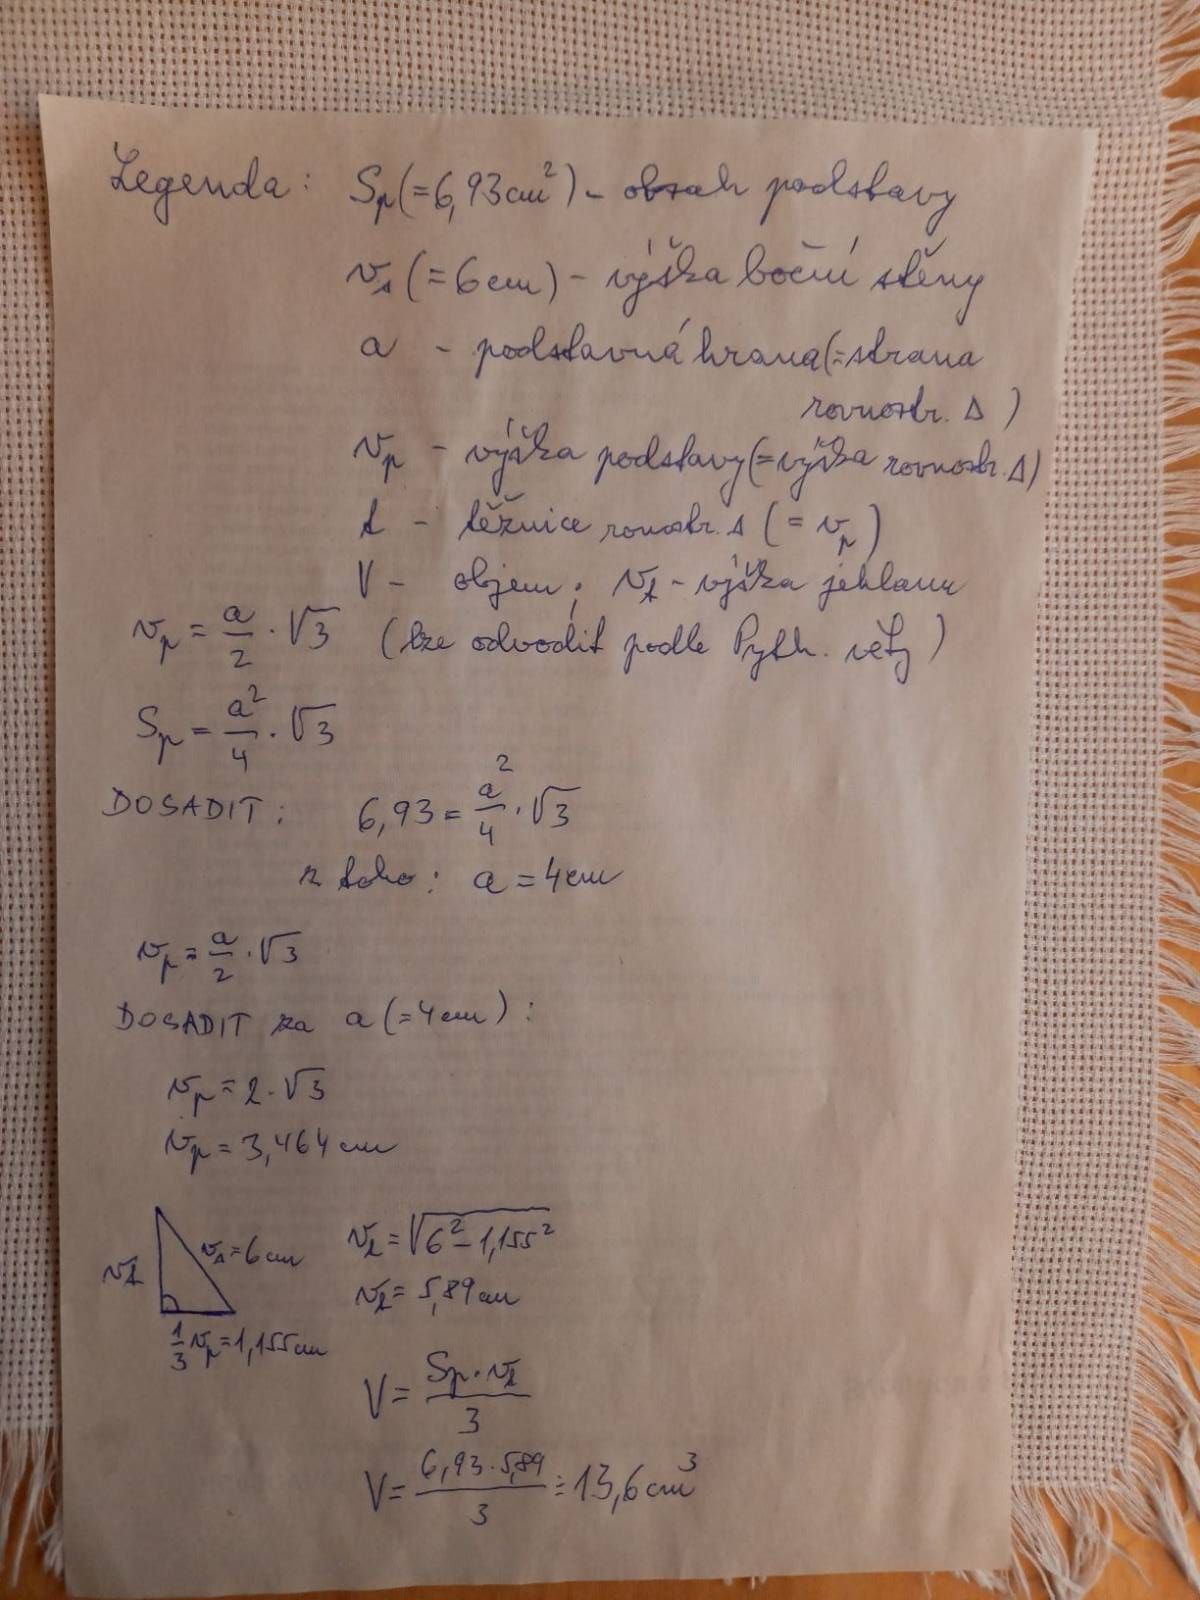 Legenda: Sp(=6,93cm²) - obsah podstavy
vs(=6cm) - výška boční stěny
a - podstavná hrana(=strana
rovnostr. Δ)
vp - výška podstavy(=výška rovnostr. Δ)
t - těžnice rovnostr. Δ (= vp)
V - objem; vt - výška jehlanu
vp = a/2 · √3 (lze odvodit podle Pyth. věty)
Sp = a²/4 · √3
DOSADIT: 6,93 = a²/4 · √3
z toho: a = 4cm
vp = a/2 · √3
DOSADIT za a(=4cm):
vp = 2 · √3
vp = 3,464 cm
vt
vs = 6cm
1/3 vp = 1,155cm
vt = √6² - 1,155²
vt = 5,89cm
V = Sp · vt / 3
V = 6,93 · 5,89 / 3 ≐ 13,6cm³